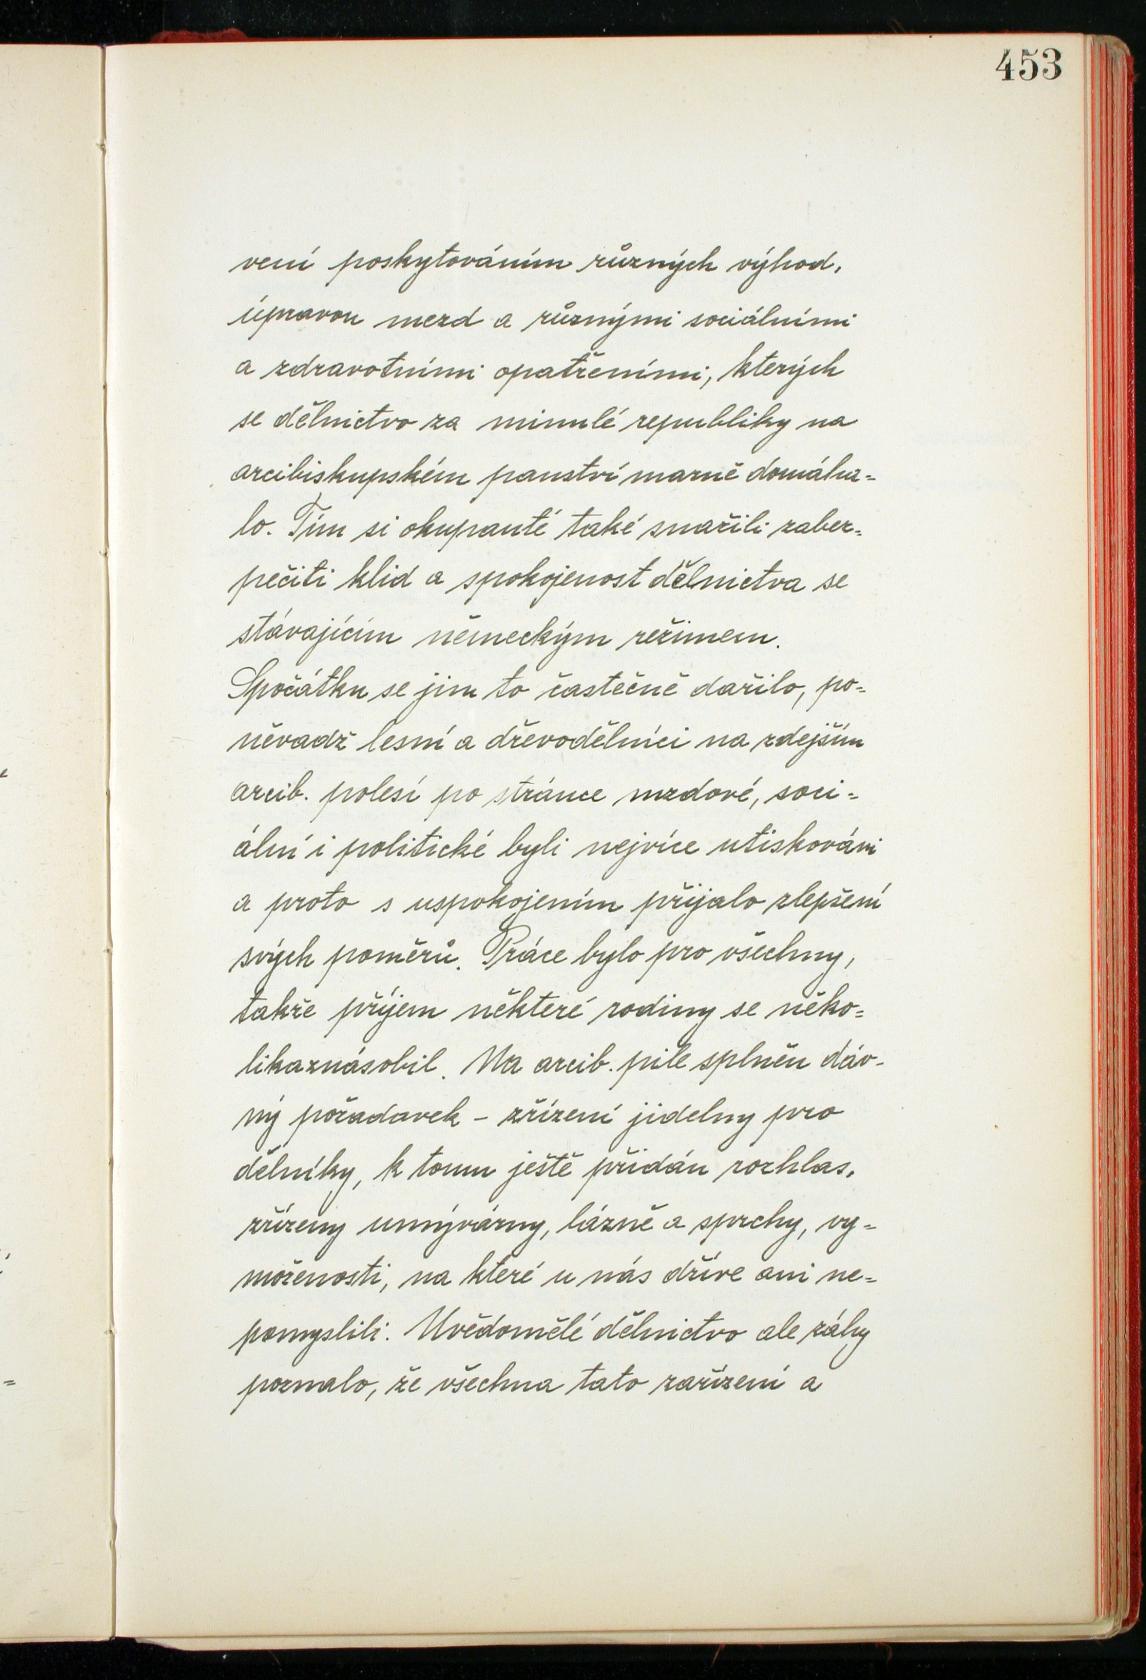 453
vení poskytováním různých výhod,
úpravou mezd a různými sociálními
a zdravotními opatřeními, kterých
se dělnictvo za minulé republiky na
arcibiskupském panství marně domáha=
lo. Tím si okupanté také snažili zabez=
pečiti klid a spokojenost dělnictva se
stávajícím německým režimem.
Spočátku se jim to častečně dařilo, po=
něvadž lesní a dřevodělníci na zdejším
arcib. polesí po stránce mzdové, soci=
ální i politické byli nejvíce utiskováni
a proto s uspokojením přijalo zlepšení
svých poměrů. Práce bylo pro všechny,
takže příjem některé rodiny se něko=
likaznásobil. Na arcib. pile splněn dáv-
ný požadavek – zřízení jidelny pro
dělníky, k tomu ještě přidán rozhlas,
zřízeny umývárny, lázně a sprchy, vy=
moženosti, na které u nás dříve ani ne=
pomyslili. Uvědomělé dělnictvo ale záhy
poznalo, že všechna tato zařízení a